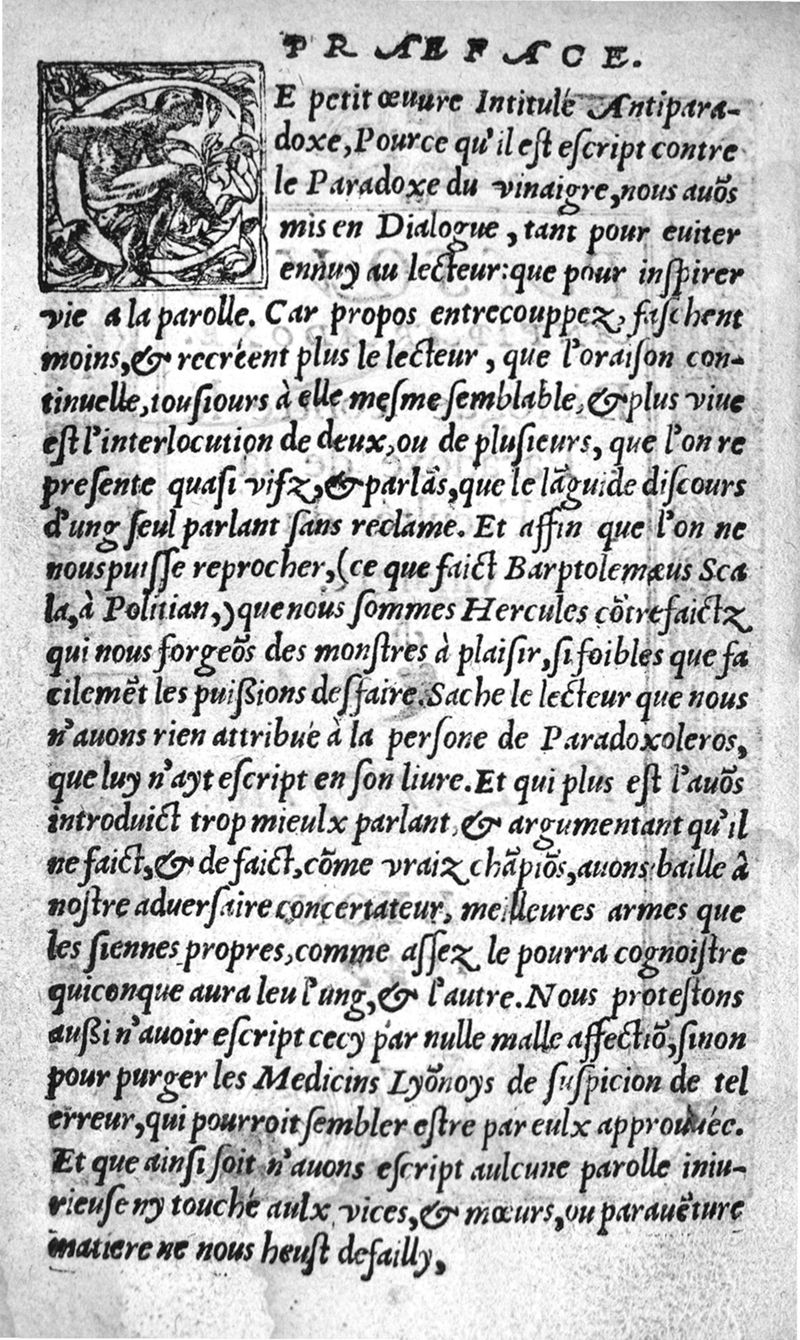 PRAEFACE.
CE petit œuure Intitulé Antipara-
doxe, Pource qu'il est escript contre
le Paradoxe du vinaigre, nous auõs
mis en Dialogue, tant pour euiter
ennuy au lecteur: que pour inspirer
vie a la parolle. Car propos entrecouppez, faschent
moins, & recréent plus le lecteur, que l'oraison con-
tinuelle, tousiours à elle mesme semblable, & plus viue
est l'interlocution de deux, ou de plusieurs, que l'on re
presente quasi vifz, & parlãs, que le lãguide discours
d'ung seul parlant sans reclame. Et affin que l'on ne
nous puisse reprocher, (ce que faict Barptolemæus Sca
la, à Politian,) que nous sommes Hercules cõtrefaictz
qui nous forgeõs des monstres à plaisir, si foibles que fa
cilemẽt les puißions desfaire. Sache le lecteur que nous
n'auons rien attribué à la persone de Paradoxoleros,
que luy n'ayt escript en son liure. Et qui plus est l'auõs
introduict trop mieulx parlant, & argumentant qu'il
ne faict, & de faict, cõme vraiz chãpiõs, auons baille à
nostre aduersaire concertateur, meilleures armes que
les siennes propres, comme assez le pourra cognoistre
quiconque aura leu l'ung, & l'autre. Nous protestons
außi n'auoir escript cecy par nulle malle affectiõ, sinon
pour purger les Medicins Lyõnoys de suspicion de tel
erreur, qui pourroit sembler estre par eulx approuuéc.
Et que ainsi soit n'auons escript aulcune parolle iniu-
rieuse ny touché aulx vices, & mœurs, ou parauẽture
matiere ne nous heust defailly,